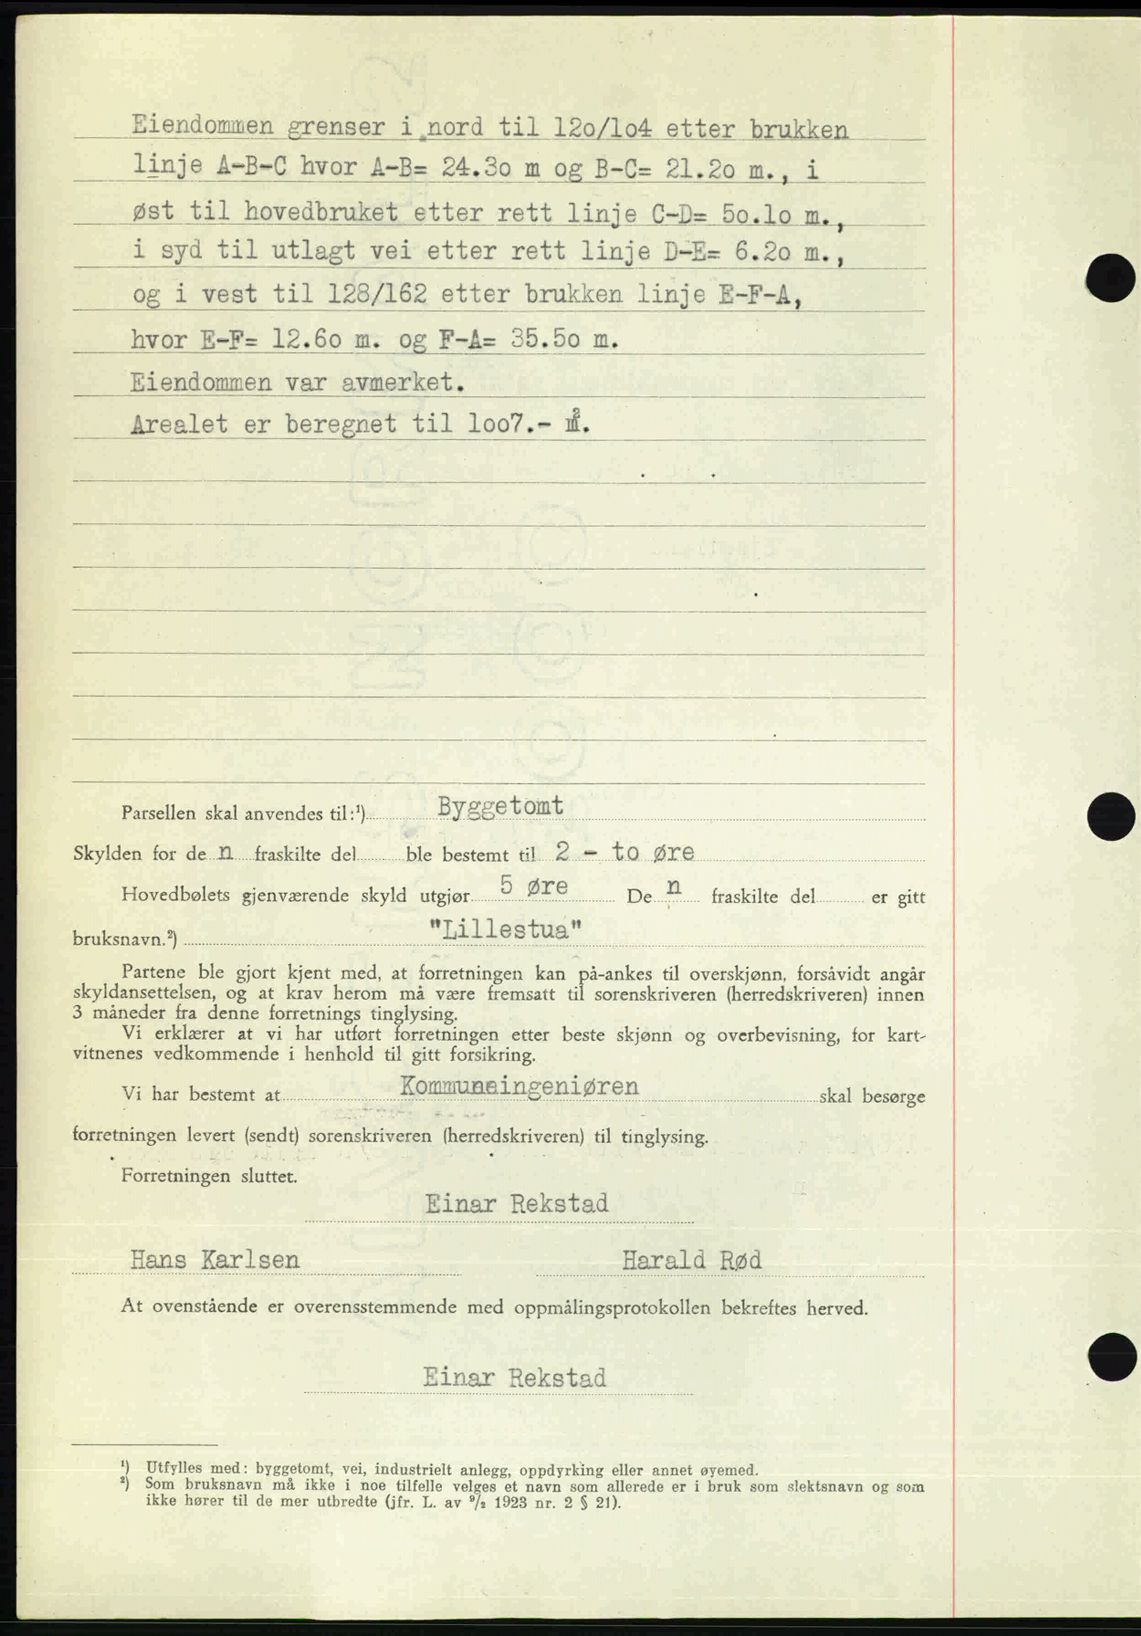 Eiendommen grenser i nord til 12o/1o4 etter brukken
linje A-B-C hvor A-B= 24.3o m og B-C= 21.2o m., i
øst til hovedbruket etter rett linje C-D= 5o.1o m.,
i syd til utlagt vei etter rett linje D-E= 6.2o m.,
og i vest til 128/162 etter brukken linje E-F-A,
hvor E-F= 12.6o m. og F-A= 35.5o m.
Eiendommen var avmerket.
Arealet er beregnet til 1oo7.- m².
Parsellen skal anvendes til:¹) Byggetomt
Skylden for de n fraskilte del ble bestemt til 2 - to øre
Hovedbølets gjenværende skyld utgjør 5 øre De n fraskilte del er gitt
bruksnavn.²) "Lillestua"
Partene ble gjort kjent med, at forretningen kan på-ankes til overskjønn, forsåvidt angår
skyldansettelsen, og at krav herom må være fremsatt til sorenskriveren (herredskriveren) innen
3 måneder fra denne forretnings tinglysing.
Vi erklærer at vi har utført forretningen etter beste skjønn og overbevisning, for kart-
vitnenes vedkommende i henhold til gitt forsikring.
Vi har bestemt at Kommuneingeniøren skal besørge
forretningen levert (sendt) sorenskriveren (herredskriveren) til tinglysing.
Forretningen sluttet.
Einar Rekstad
Hans Karlsen Harald Rød
At ovenstående er overensstemmende med oppmålingsprotokollen bekreftes herved.
Einar Rekstad
¹) Utfylles med: byggetomt, vei, industrielt anlegg, oppdyrking eller annet øyemed.
²) Som bruksnavn må ikke i noe tilfelle velges et navn som allerede er i bruk som slektsnavn og som
ikke hører til de mer utbredte (jfr. L. av 9/2 1923 nr. 2 § 21).